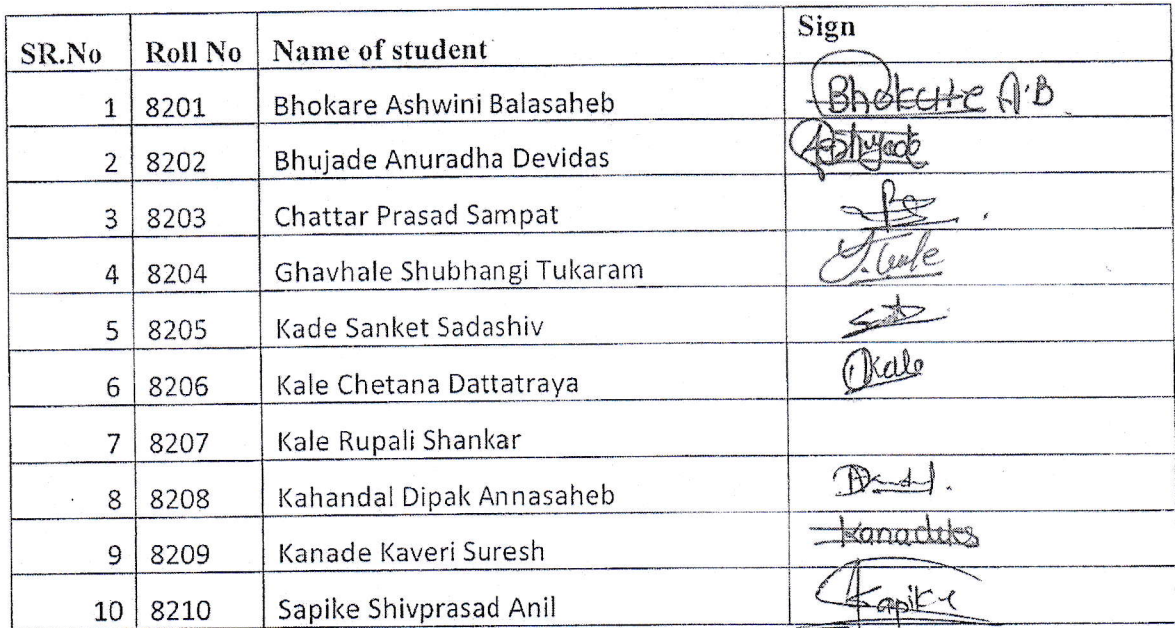 SR.No Roll No Name of student Sign
1 8201 Bhokare Ashwini Balasaheb Bhokare A.B
2 8202 Bhujade Anuradha Devidas
3 8203 Chattar Prasad Sampat
4 8204 Ghavhale Shubhangi Tukaram
5 8205 Kade Sanket Sadashiv
6 8206 Kale Chetana Dattatraya Kale
7 8207 Kale Rupali Shankar
8 8208 Kahandal Dipak Annasaheb
9 8209 Kanade Kaveri Suresh
10 8210 Sapike Shivprasad Anil Sapike